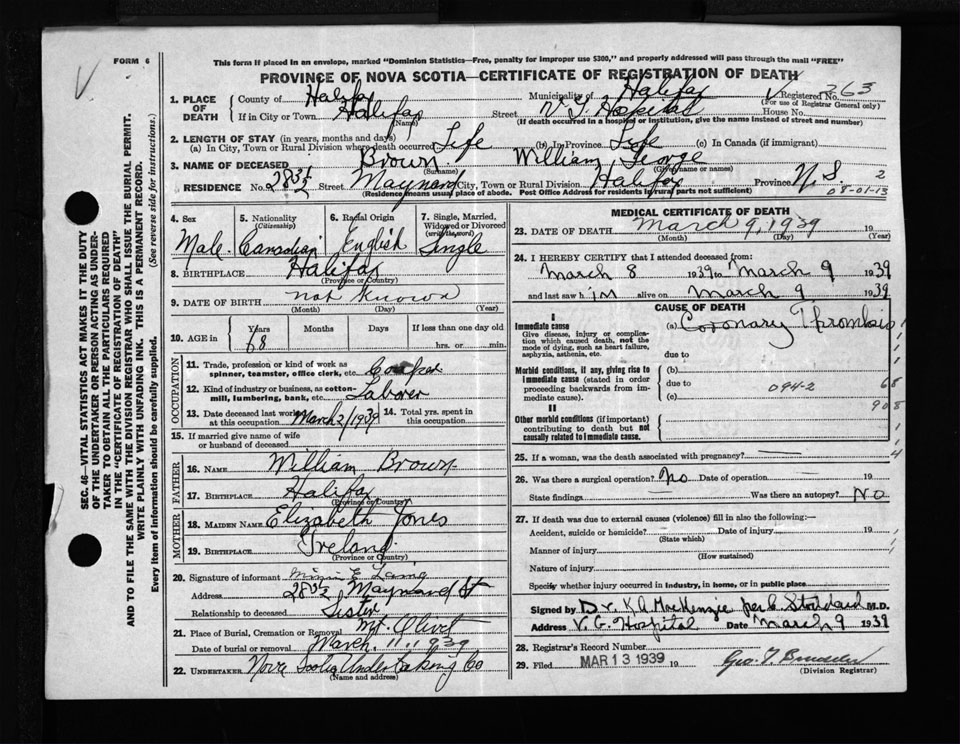 FORM 6
This form if placed in an envelope, marked "Dominion Statistics—Free, penalty for improper use $300," and properly addressed will pass through the mail "FREE"
PROVINCE OF NOVA SCOTIA—CERTIFICATE OF REGISTRATION OF DEATH
SEC. 46—VITAL STATISTICS ACT MAKES IT THE DUTY
OF THE UNDERTAKER OR PERSON ACTING AS UNDER-
TAKER TO OBTAIN ALL THE PARTICULARS REQUIRED
IN THE "CERTIFICATE OF REGISTRATION OF DEATH"
AND TO FILE THE SAME WITH THE DIVISION REGISTRAR WHO SHALL ISSUE THE BURIAL PERMIT.
WRITE PLAINLY WITH UNFADING INK. THIS IS A PERMANENT RECORD.
Every item of Information should be carefully supplied. (See reverse side for instructions.)
1. PLACE OF DEATH County of Halifax Municipality of Halifax Registered No. 263
(For use of Registrar General only)
If in City or Town Halifax Street V G Hospital House No.
(Name) (If death occurred in a hospital or institution, give the name instead of street and number)
2. LENGTH OF STAY (in years, months and days)
(a) In City, Town or Rural Division where death occurred Life (b) In Province Life (c) In Canada (if immigrant)
3. NAME OF DECEASED Brown William George
(Surname) (Given name or names)
RESIDENCE No. 283½ Street Maynard City, Town or Rural Division Halifax Province N.S. 2
(Residence means usual place of abode. Post Office Address for residents in rural parts not sufficient) 08-01-13
4. Sex 5. Nationality (Citizenship) 6. Racial Origin 7. Single, Married, Widowed or Divorced (write the word)
Male Canadian English Single
8. BIRTHPLACE Halifax
(Province or Country)
9. DATE OF BIRTH not known
(Month) (Day) (Year)
10. AGE in Years Months Days If less than one day old
68 hrs. or min.
OCCUPATION
11. Trade, profession or kind of work as spinner, teamster, office clerk, etc. Cooper
12. Kind of industry or business, as cotton-mill, lumbering, bank, etc. Laborer
13. Date deceased last worked at this occupation March 2/1939 14. Total yrs. spent in this occupation
15. If married give name of wife or husband of deceased
FATHER
16. NAME William Brown
17. BIRTHPLACE Halifax
(Province or Country)
MOTHER
18. MAIDEN NAME Elizabeth Jones
19. BIRTHPLACE Ireland
(Province or Country)
20. Signature of informant Minnie E Laing
Address 283½ Maynard St
Relationship to deceased Sister
21. Place of Burial, Cremation or Removal Mt. Olivet
Date of burial or removal March 11, 1939
22. UNDERTAKER Nova Scotia Undertaking Co
(Name and address)
MEDICAL CERTIFICATE OF DEATH
23. DATE OF DEATH March 9, 1939 19
(Month) (Day) (Year)
24. I HEREBY CERTIFY that I attended deceased from:
March 8 1939 to March 9 1939
and last saw h im alive on March 9 1939
CAUSE OF DEATH
I
Immediate cause (a) Coronary Thrombosis
Give disease, injury or complication which caused death, not the mode of dying, such as heart failure, asphyxia, asthenia, etc.
due to
Morbid conditions, if any, giving rise to immediate cause (stated in order proceeding backwards from immediate cause). (b)
due to 094-2 68
(c) 908
II
Other morbid conditions (if important) contributing to death but not causally related to immediate cause.
25. If a woman, was the death associated with pregnancy? —
26. Was there a surgical operation? No Date of operation — 19
State findings — Was there an autopsy? No
27. If death was due to external causes (violence) fill in also the following:—
Accident, suicide or homicide? Date of injury 19
(State which)
Manner of injury
(How sustained)
Nature of injury
Specify whether injury occurred in industry, in home, or in public place
Signed by Dr. K A MacKenzie per C. Stoddard M.D.
Address V. G. Hospital Date March 9 1939
28. Registrar's Record Number
29. Filed MAR 13 1939 19
(Division Registrar)